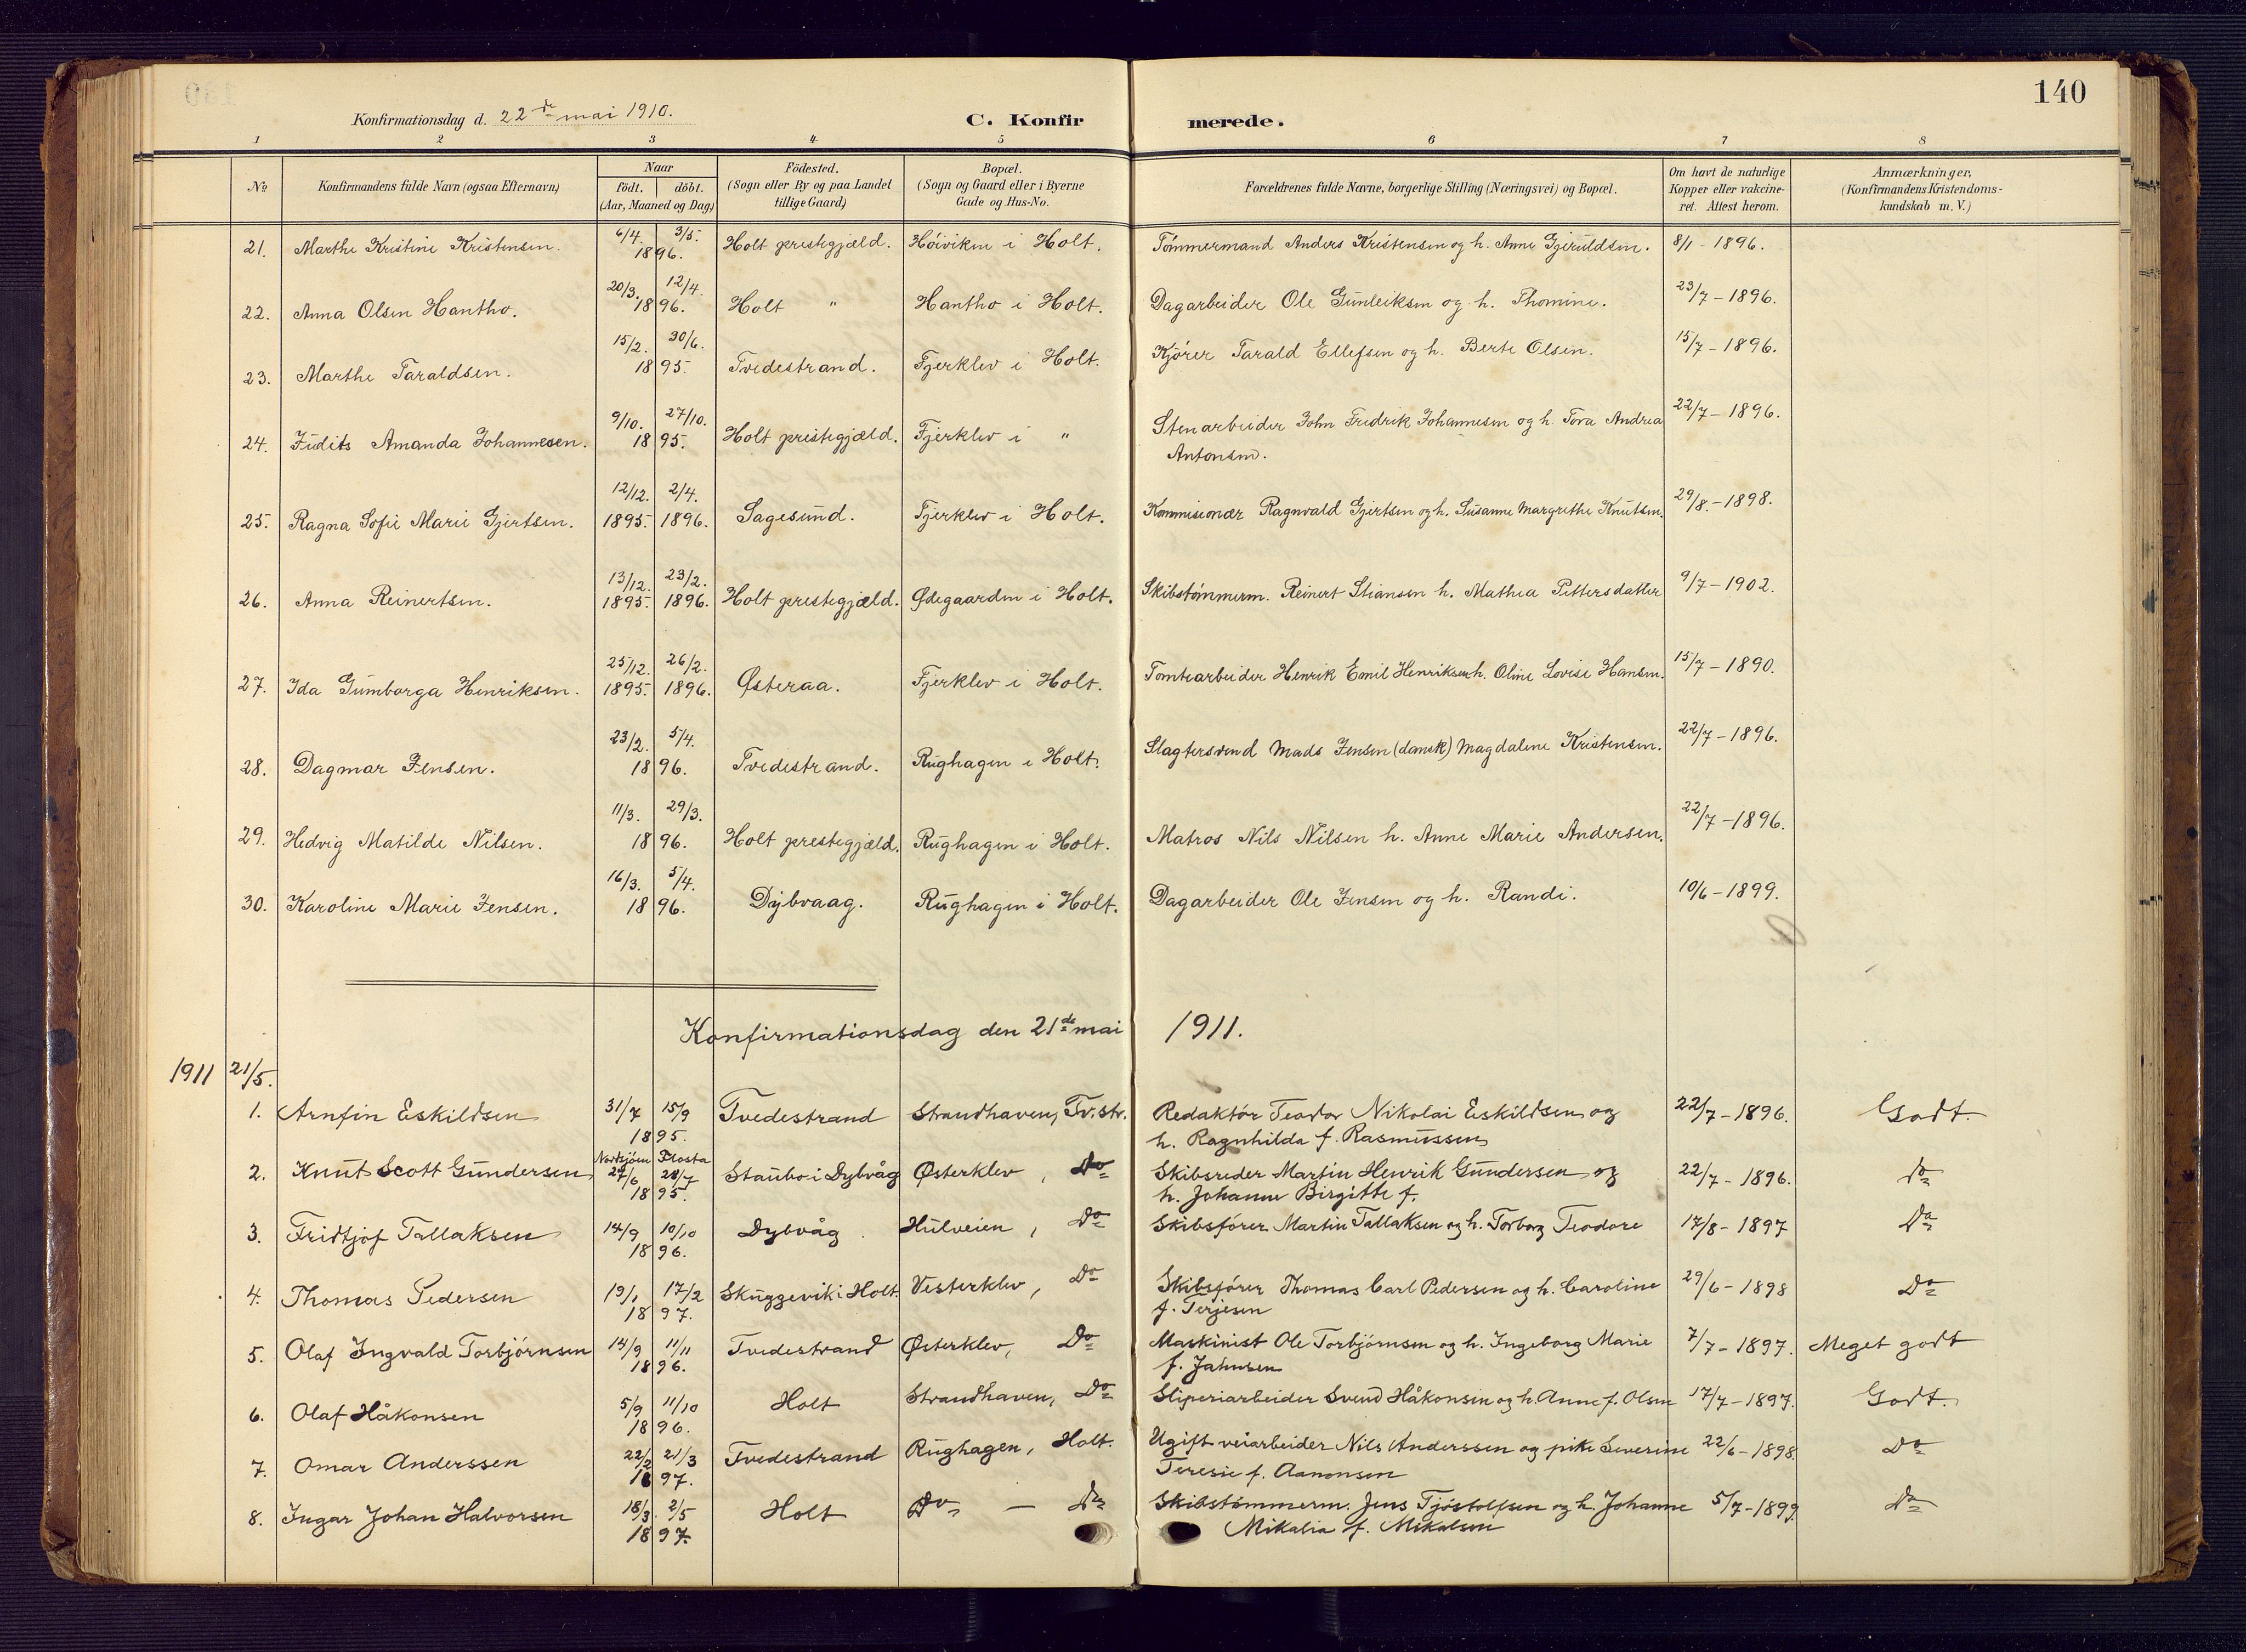 140
Konfirmationsdag d. 22de mai 1910. C. Konfirmerede.
1 2 3 4 5 6 7 8
No Konfirmandens fulde Navn (ogsaa Efternavn) Naar födt. döbt. (Aar, Maaned og Dag) Födested. (Sogn eller By og paa Landet tillige Gaard) Bopæl. (Sogn og Gaard eller i Byerne Gade og Hus-No. Forældrenes fulde Navne, borgerlige Stilling (Næringsvei) og Bopæl. Om havt de naturlige Kopper eller vakcineret. Attest herom. Anmærkninger. (Konfirmandens Kristendomskundskab m. V.)
21. Marthe Kristine Kristensen. 6/4. 3/5. 1896. Holt prestegjæld. Höiviken i Holt. Tömmermand Anders Kristensen og h. Anne Gjeruldsen. 8/1 - 1896.
22. Anna Olsen Hantho. 20/3. 12/4. 1896. Holt " Hantho i Holt. Dagarbeider Ole Gunleiksen og h. Thomine. 23/7 - 1896.
23. Marthe Taraldsen. 15/2. 30/6. 1895. Tvedestrand. Fjerklev i Holt. Kjörer Tarald Ellefsen og h. Berte Olsen. 15/7 - 1896.
24. Judits Amanda Johannesen. 9/10. 27/10. 1895. Holt prestegjæld. Fjerklev i " Stenarbeider John Fredrik Johannesen og h. Tora Andrea
Antonsen. 22/7 - 1896.
25. Ragna Sofie Marie Gjertsen. 12/12. 1895. 2/4. 1896. Sagesund. Fjerklev i Holt. Kommisionær Ragnvald Gjertsen og h. Susanne Margrethe Knutsen. 29/8. - 1898.
26. Anna Reinertsen. 13/12. 1895. 23/2. 1896. Holt prestegjæld. Ødegaarden i Holt. Skibstömmerm. Reinert Stiansen h. Mathea Pettersdatter 9/7 - 1902.
27. Ida Gumborga Henriksen. 25/12. 1895. 26/2. 1896. Østeraa. Fjerklev i Holt. Tomtearbeider Henrik Emil Henriksen h. Oline Lovise Hansen. 15/7 - 1890.
28. Dagmar Jensen. 23/2. 5/4. 1896. Tvedestrand. Rughagen i Holt. Slagtersvend Mads Jensen (dansk) Magdalene Kristensen. 22/7 - 1896.
29. Hedvig Matilde Nilsen. 11/3. 29/3. 1896. Holt prestegjæld. Rughagen i Holt. Matros Nils Nilsen h. Anne Marie Andersen. 22/7 - 1896.
30. Karoline Marie Jensen. 16/3. 5/4. 1896. Dybvaag. Rughagen i Holt. Dagarbeider Ole Jensen og h. Randi. 10/6 - 1899.
Konfirmationsdag den 21de mai 1911.
1911 21/5.
1. Arnfin Eskildsen 31/7 15/9 1895. Tvedestrand Strandhaven, Tv.str. Redaktör Teodor Nikolai Eskildsen og
h. Ragnhilda f. Rasmussen 22/7 - 1896. Godt.
2. Knut Scott Gundersen Nordsjöen 27/6 Flosta 28/7 1895. Staubo i Dybvåg Østerklev, Do Skibsreder Martin Henrik Gundersen og
h. Johanne Birgitte f. 22/7 - 1896. Do
3. Fridtjof Tallaksen 14/9 10/10 1896. Dybvåg. Hulveien, Do Skibsförer Martin Tallaksen og h. Torborg Teodore 17/8 - 1897 Do
4. Thomas Pedersen 19/1 17/2 1897. Skuggevik i Holt. Vesterklev, Do Skibsförer Thomas Carl Pedersen og h. Caroline
f. Terjesen 29/6 - 1898 Do
5. Olaf Ingvald Torbjörnsen 14/9 11/11 1896. Tvedestrand Østerklev, Do Maskinist Ole Torbjörnsen og h. Ingeborg Marie
f. Jahnsen 7/7 - 1897. Meget godt
6. Olaf Håkonsen 5/9 11/10 1896. Holt Strandhaven, Do Sliperiarbeider Svend Håkonsen og h. Anne f. Olsen 17/7 - 1897. Godt.
7. Omar Anderssen 22/2 21/3 1897. Tvedestrand Rughagen, Holt. Ugift veiarbeider Nils Anderssen og pike Severine
Teresie f. Aanonsen 22/6 - 1898. Do
8. Ingar Johan Halvorsen 18/3. 2/5 1897. Holt Do - Do Skibstömmerm. Jens Tjöstolfsen og h. Johanne
Mikalia f. Mikalsen 5/7 - 1899. Do